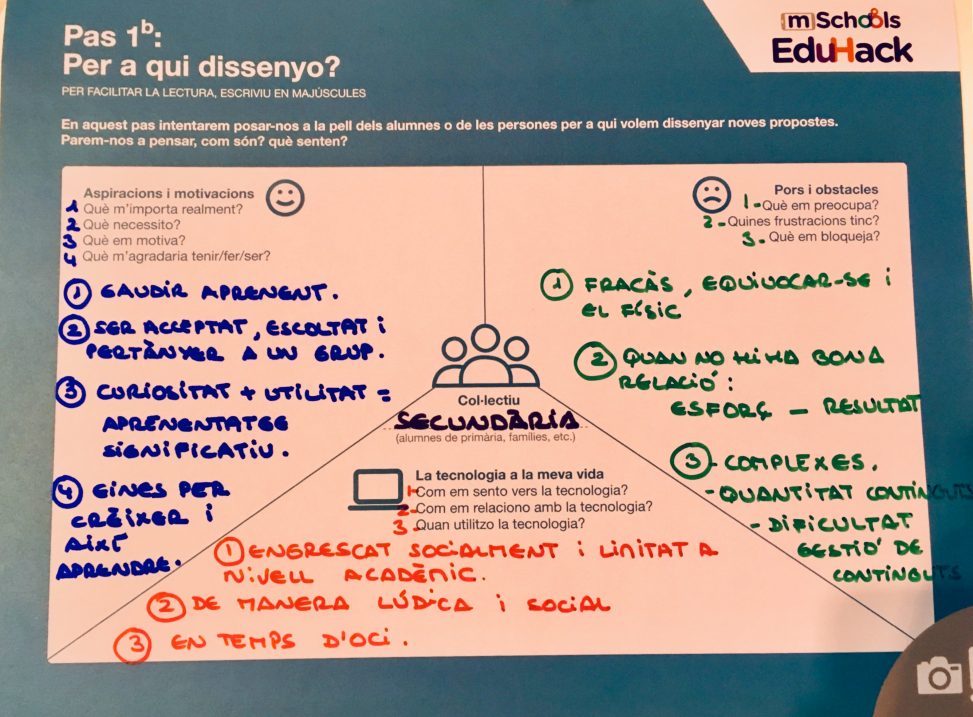 Pas 1b:
Per a qui dissenyo?
PER FACILITAR LA LECTURA, ESCRIVIU EN MAJÚSCULES
mSchools
EduHack
En aquest pas intentarem posar-nos a la pell dels alumnes o de les persones per a qui volem dissenyar noves propostes.
Parem-nos a pensar, com són? què senten?
Aspiracions i motivacions
1 Què m'importa realment?
2 Què necessito?
3 Què em motiva?
4 Què m'agradaria tenir/fer/ser?
1 GAUDIR APRENENT.
2 SER ACCEPTAT, ESCOLTAT i
PERTÀNYER A UN GRUP.
3 CURIOSITAT + UTILITAT =
APRENENTATGE
SIGNIFICATIU.
4 EINES PER
CRÈIXER i
AIXÍ
APRENDRE.
Pors i obstacles
1- Què em preocupa?
2- Quines frustracions tinc?
3- Què em bloqueja?
1 FRACÀS, EQUIVOCAR-SE i
EL FÍSIC
2 QUAN NO HI HA BONA
RELACIÓ:
ESFORÇ - RESULTAT
3 - COMPLEXES.
- QUANTITAT CONTINGUTS
- DIFICULTAT
GESTIÓ DE
CONTINGUTS
Col·lectiu
SECUNDÀRIA
(alumnes de primària, famílies, etc.)
La tecnologia a la meva vida
1- Com em sento vers la tecnologia?
2- Com em relaciono amb la tecnologia?
3- Quan utilitzo la tecnologia?
1 ENGRESCAT SOCIALMENT i LIMITAT A
NIVELL ACADÈMIC.
2 DE MANERA LÚDICA i SOCIAL
3 EN TEMPS D'OCI.